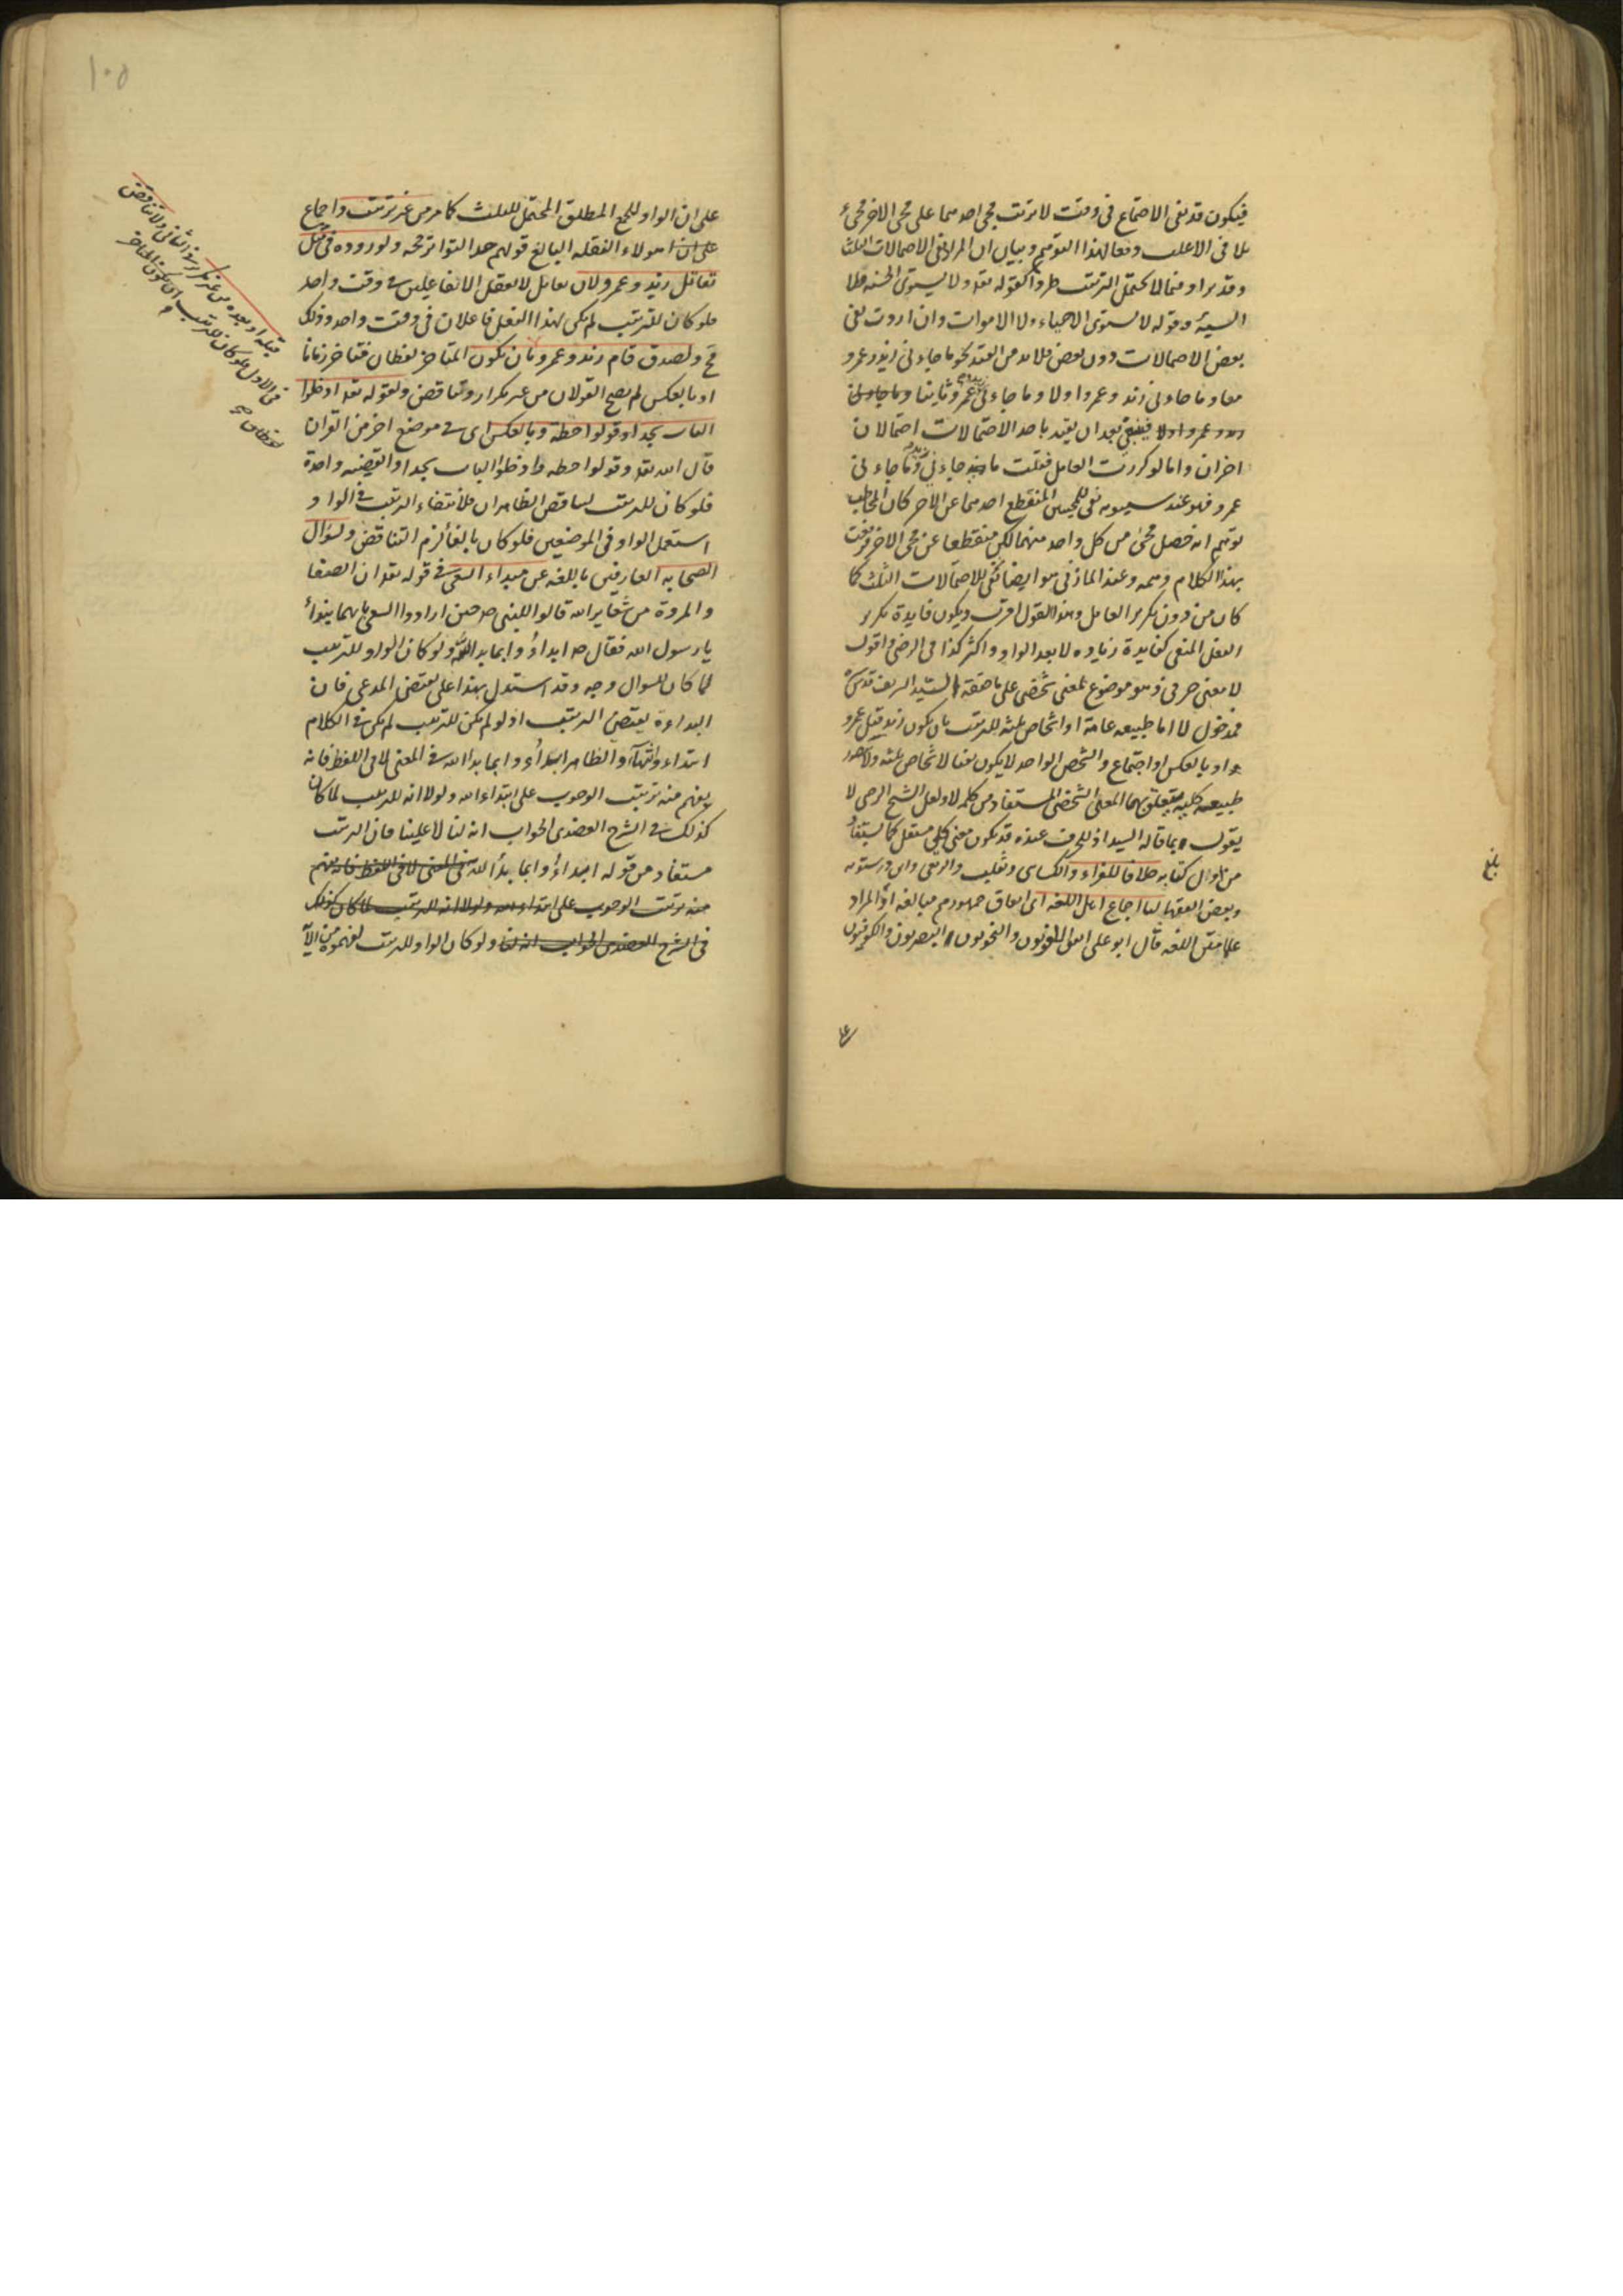 فيكون قد نفى الاجتماع فى وقت لا ترتب مجى احدهما على مجى الاخر فجئ
بلا فى الاغلب دفعا لهذا التوهم وبيان ان المراد نفى الاحتمالات الثلث
وقد يراد فيما لا يحتمل الترتيب طردا كقوله تعه ولا يستوى الحسنه ولا
السيئه وقوله لا يستوى الاحياء ولا الاموات وان اردت نفى
بعض الاحتمالات دون بعض فلا بد من القيد نحو ما جاءنى زيد وعمرو
معا وما جاءنى زيد وعمرو اولا وما جاءنى عمرو ثانيا وما جاءنى
زيد وعمرو اولا فينبغى بعد ان يقيد باحد الاحتمالات احتمالان
اخران واما لو كررت العامل فقلت ما جاءنى زيد وما جاءنى
عمرو فهو عند سيبويه نفى للمجيئين المنقطع احدهما عن الاخر كان المخاطب
توهم انه حصل مجئ من كل واحد منهما لكن منقطعا عن مجى الاخر فرفعت
بهذا الكلام وهمه وعند المازنى هو ايضا نفى للاحتمالات الثلث كما
كان من دون تكرير العامل وهذا القول اقرب ويكون فايدة تكرير
الفعل المنفى كفايدة زياده لا بعد الواو واكثر كذا فى الرضى واقول
لا معنى حرفى وهو موضوع لمعنى شخصى على ما حققه السيد الشريف قدس
فمدخول لا اما طبيعه عامة او اشخاص ثلثه للترتيب بان يكون زيد قبل عمرو
او بالعكس او اجتماع والشخص الواحد لا يكون نفيا لاشخاص ثلثه ولا
طبيعه كليه يتعلق بها المعنى الشخصى المستفاد من كلمه لا ولعل الشيخ الرضى لا
يقول بما قاله السيد اذ للحرف عنده قد يكون معنى كلى مستقل كما يستفاد
من اوائل كتابه خلافا للفراء والكسائى وثعلب والربعى وابن درستويه
وبعض الفقهاء لنا اجماع اهل اللغه اى اتفاق جمهورهم مبالغه او المراد
علماء متن اللغه قال ابو على اتفق اللغويون والنحويون البصريون والكوفيون
بلغ
على
١٠٥
على ان الواو للجمع المطلق المحتمل للثلث كما مر من غير ترتيب واجماع
على ان هولاء النقله البالغ قولهم حد التواتر حجه ولوروده فى مثل
تقاتل زيد وعمرو لان تقاتل لا يعقل الا بفاعلين فى وقت واحد
فلو كان للترتيب لم يكن لهذا الفعل فاعلان فى وقت واحد وذلك
مح ولصدق قام زيد وعمرو بان يكون المتاخر لفظا فى متاخر زمانا
او بالعكس لم يصح القولان من غير تكرار وتناقض ولقوله تعه ادخلوا
الباب سجدا وقولوا حطة وبالعكس اى فى موضع اخر من القران
قال الله تعه وقولوا حطه وادخلوا الباب سجدا والقضيه واحدة
فلو كان للترتيب لتناقض الظاهران فلانتفاء الترتيب فى الواو
استعمل الواو فى الموضعين فلو كان بالفاء لزم التناقض ولسؤال
الصحابه العارفين باللغه عن مبداء السعى فى قوله تعه ان الصفا
والمروة من شعاير الله قالوا للنبى ص حين ارادوا السعى بايهما يبدأ
يا رسول الله فقال ص ابداؤا بما بدا الله ولو كان الواو للترتيب
لما كان للسوال وجه وقد استدل بهذا على نقيض المدعى فان
البداءة يقتضى الترتيب اذ لو لم يكن للترتيب لم يكن فى الكلام
ابتداء وانتهاء والظاهر ابداؤا بما بدا الله فى المعنى لا فى اللفظ فانه
يفهم منه ترتيب الوجوب على ابتداء الله ولولا انه للترتيب لما كان
كذلك فى الشرح العضدى الجواب انه لنا لا علينا فان الترتيب
مستفاد من قوله ابداؤا بما بدأ الله فى المعنى لا فى اللفظ فانه يفهم
منه ترتيب الوجوب على ابتداء الله ولولا انه للترتيب لما كان كذلك
فى الشرح العضدى الجواب انه لنا ولو كان الواو للترتيب لفهموه من الآ
قبله او بعده من غير تكرير فى الثانى ولا تناقض
فى الاول فلو كان للترتيب اى يكون المتاخر
لفظا صح